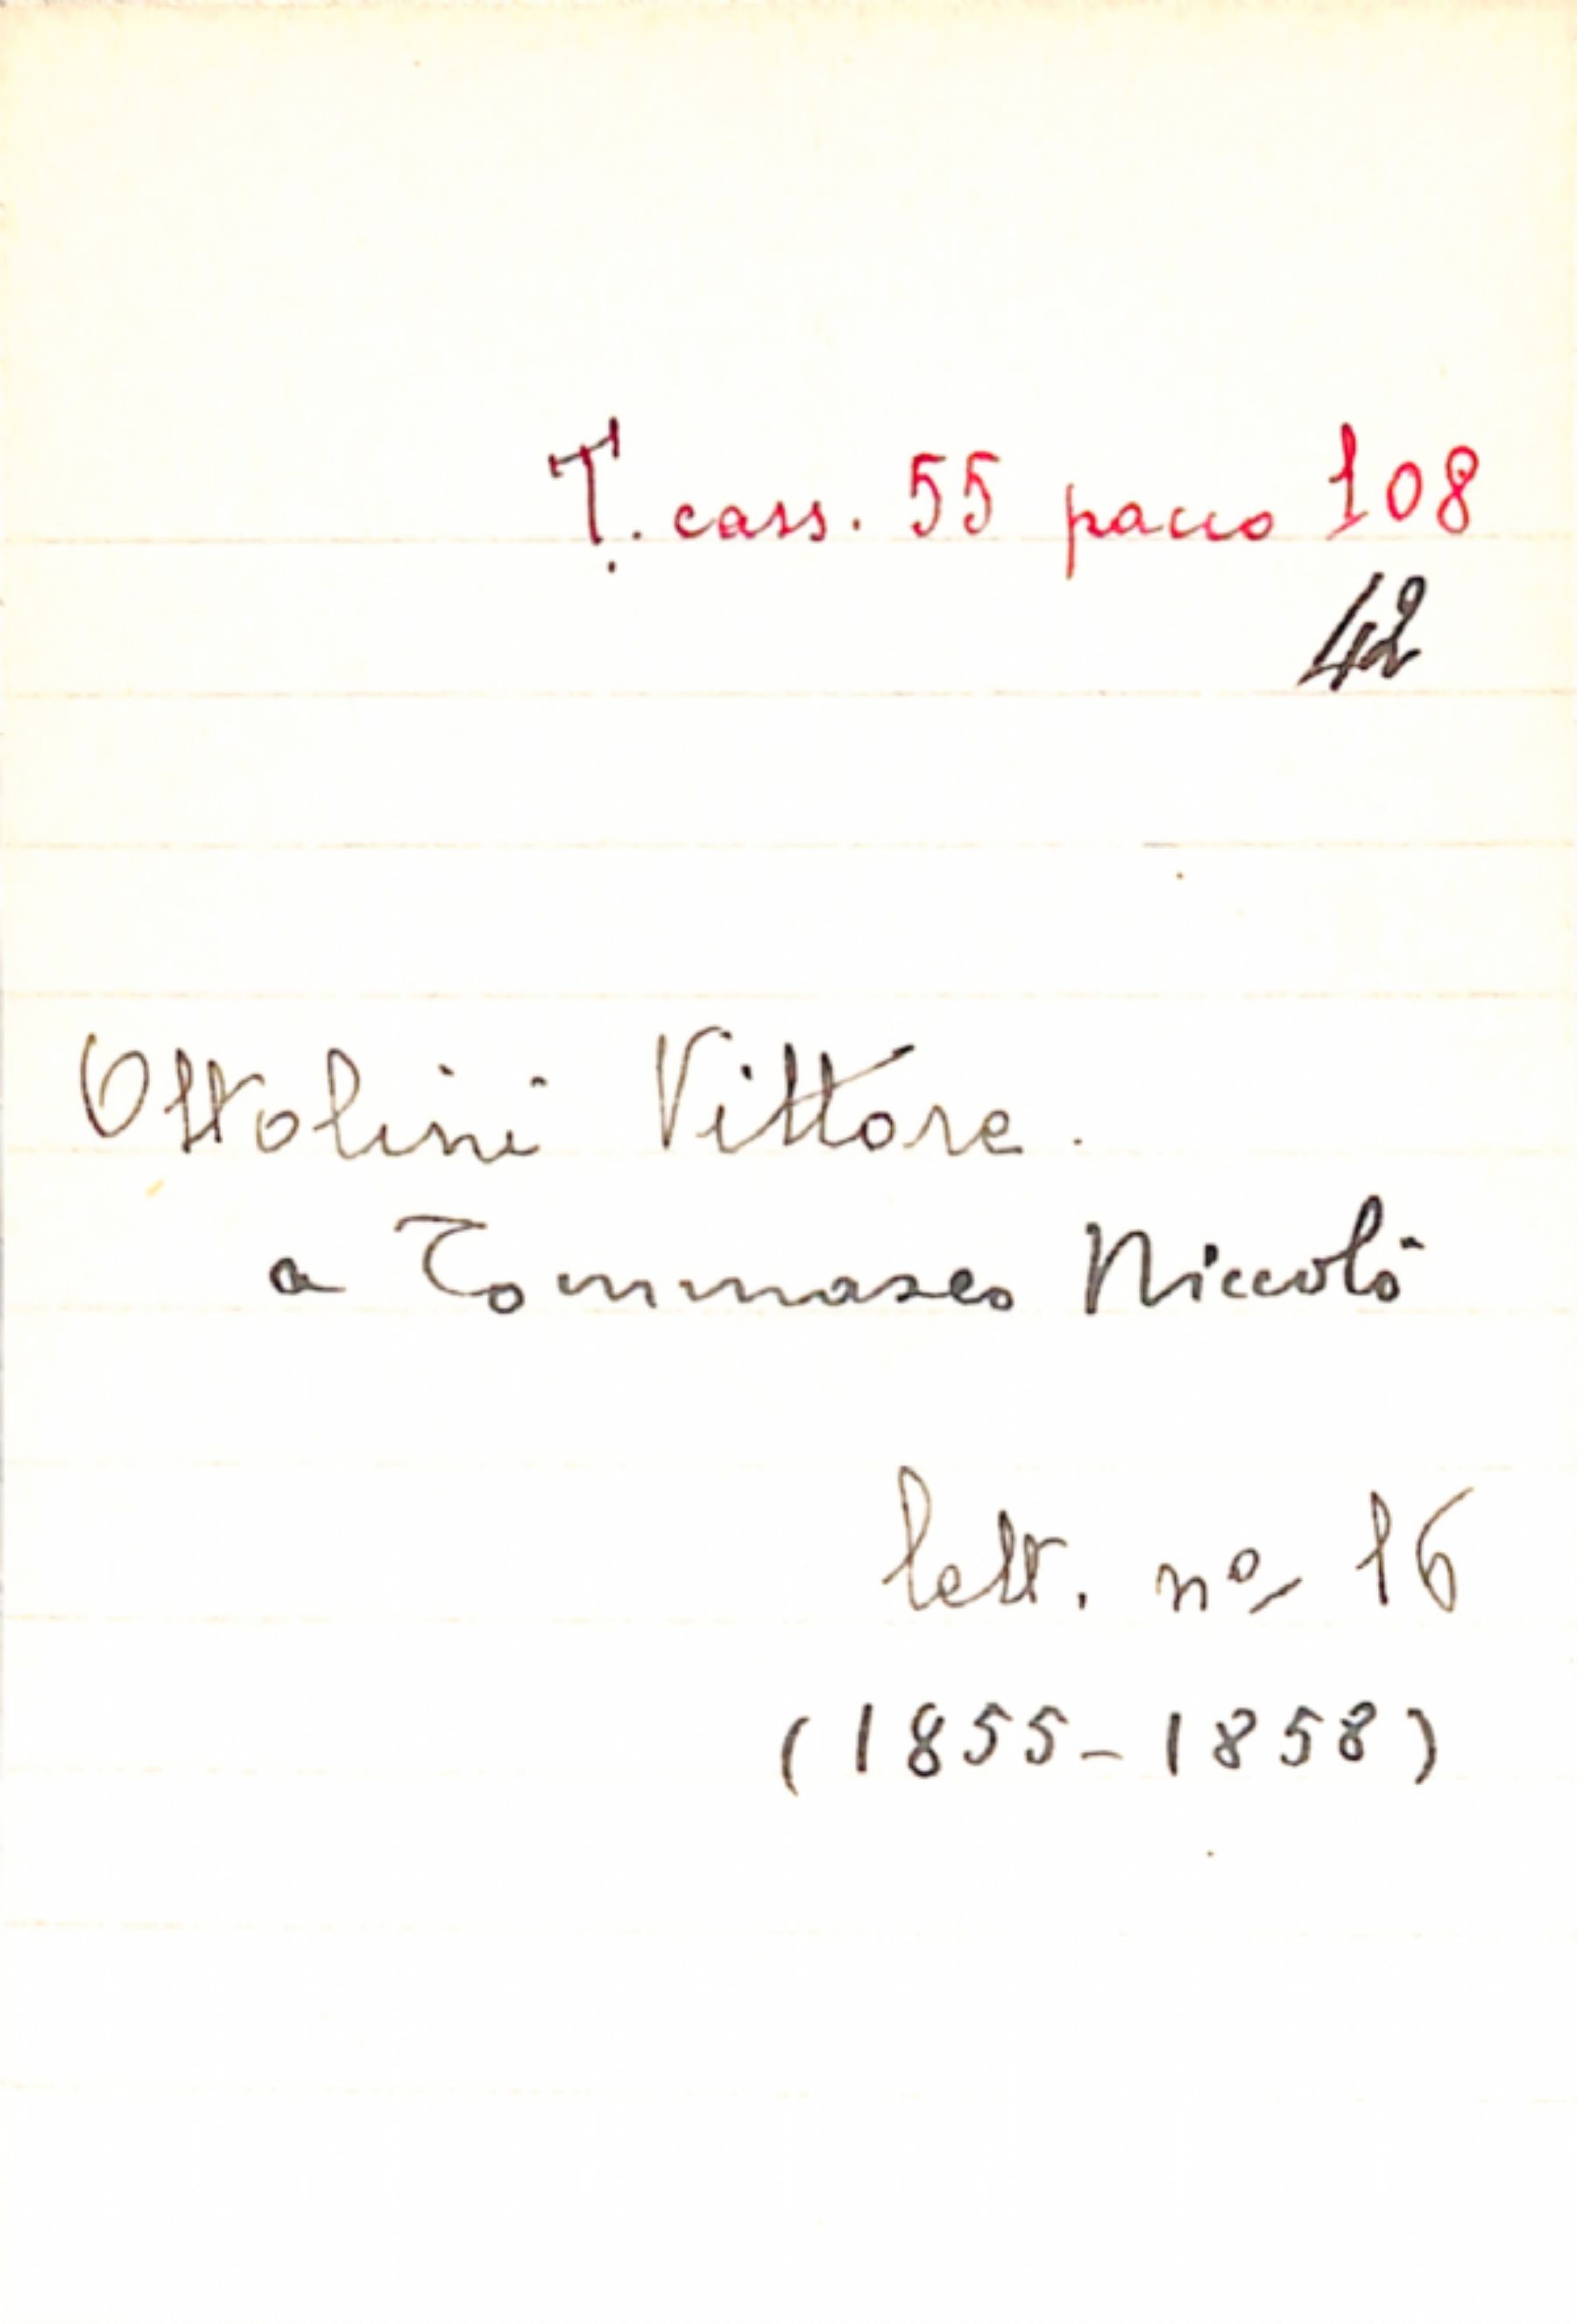 T. cass. 55 pacco 108
42
Ottolini Vittore.
a Tommaseo Niccolò
lett. nº 16
(1855-1858)